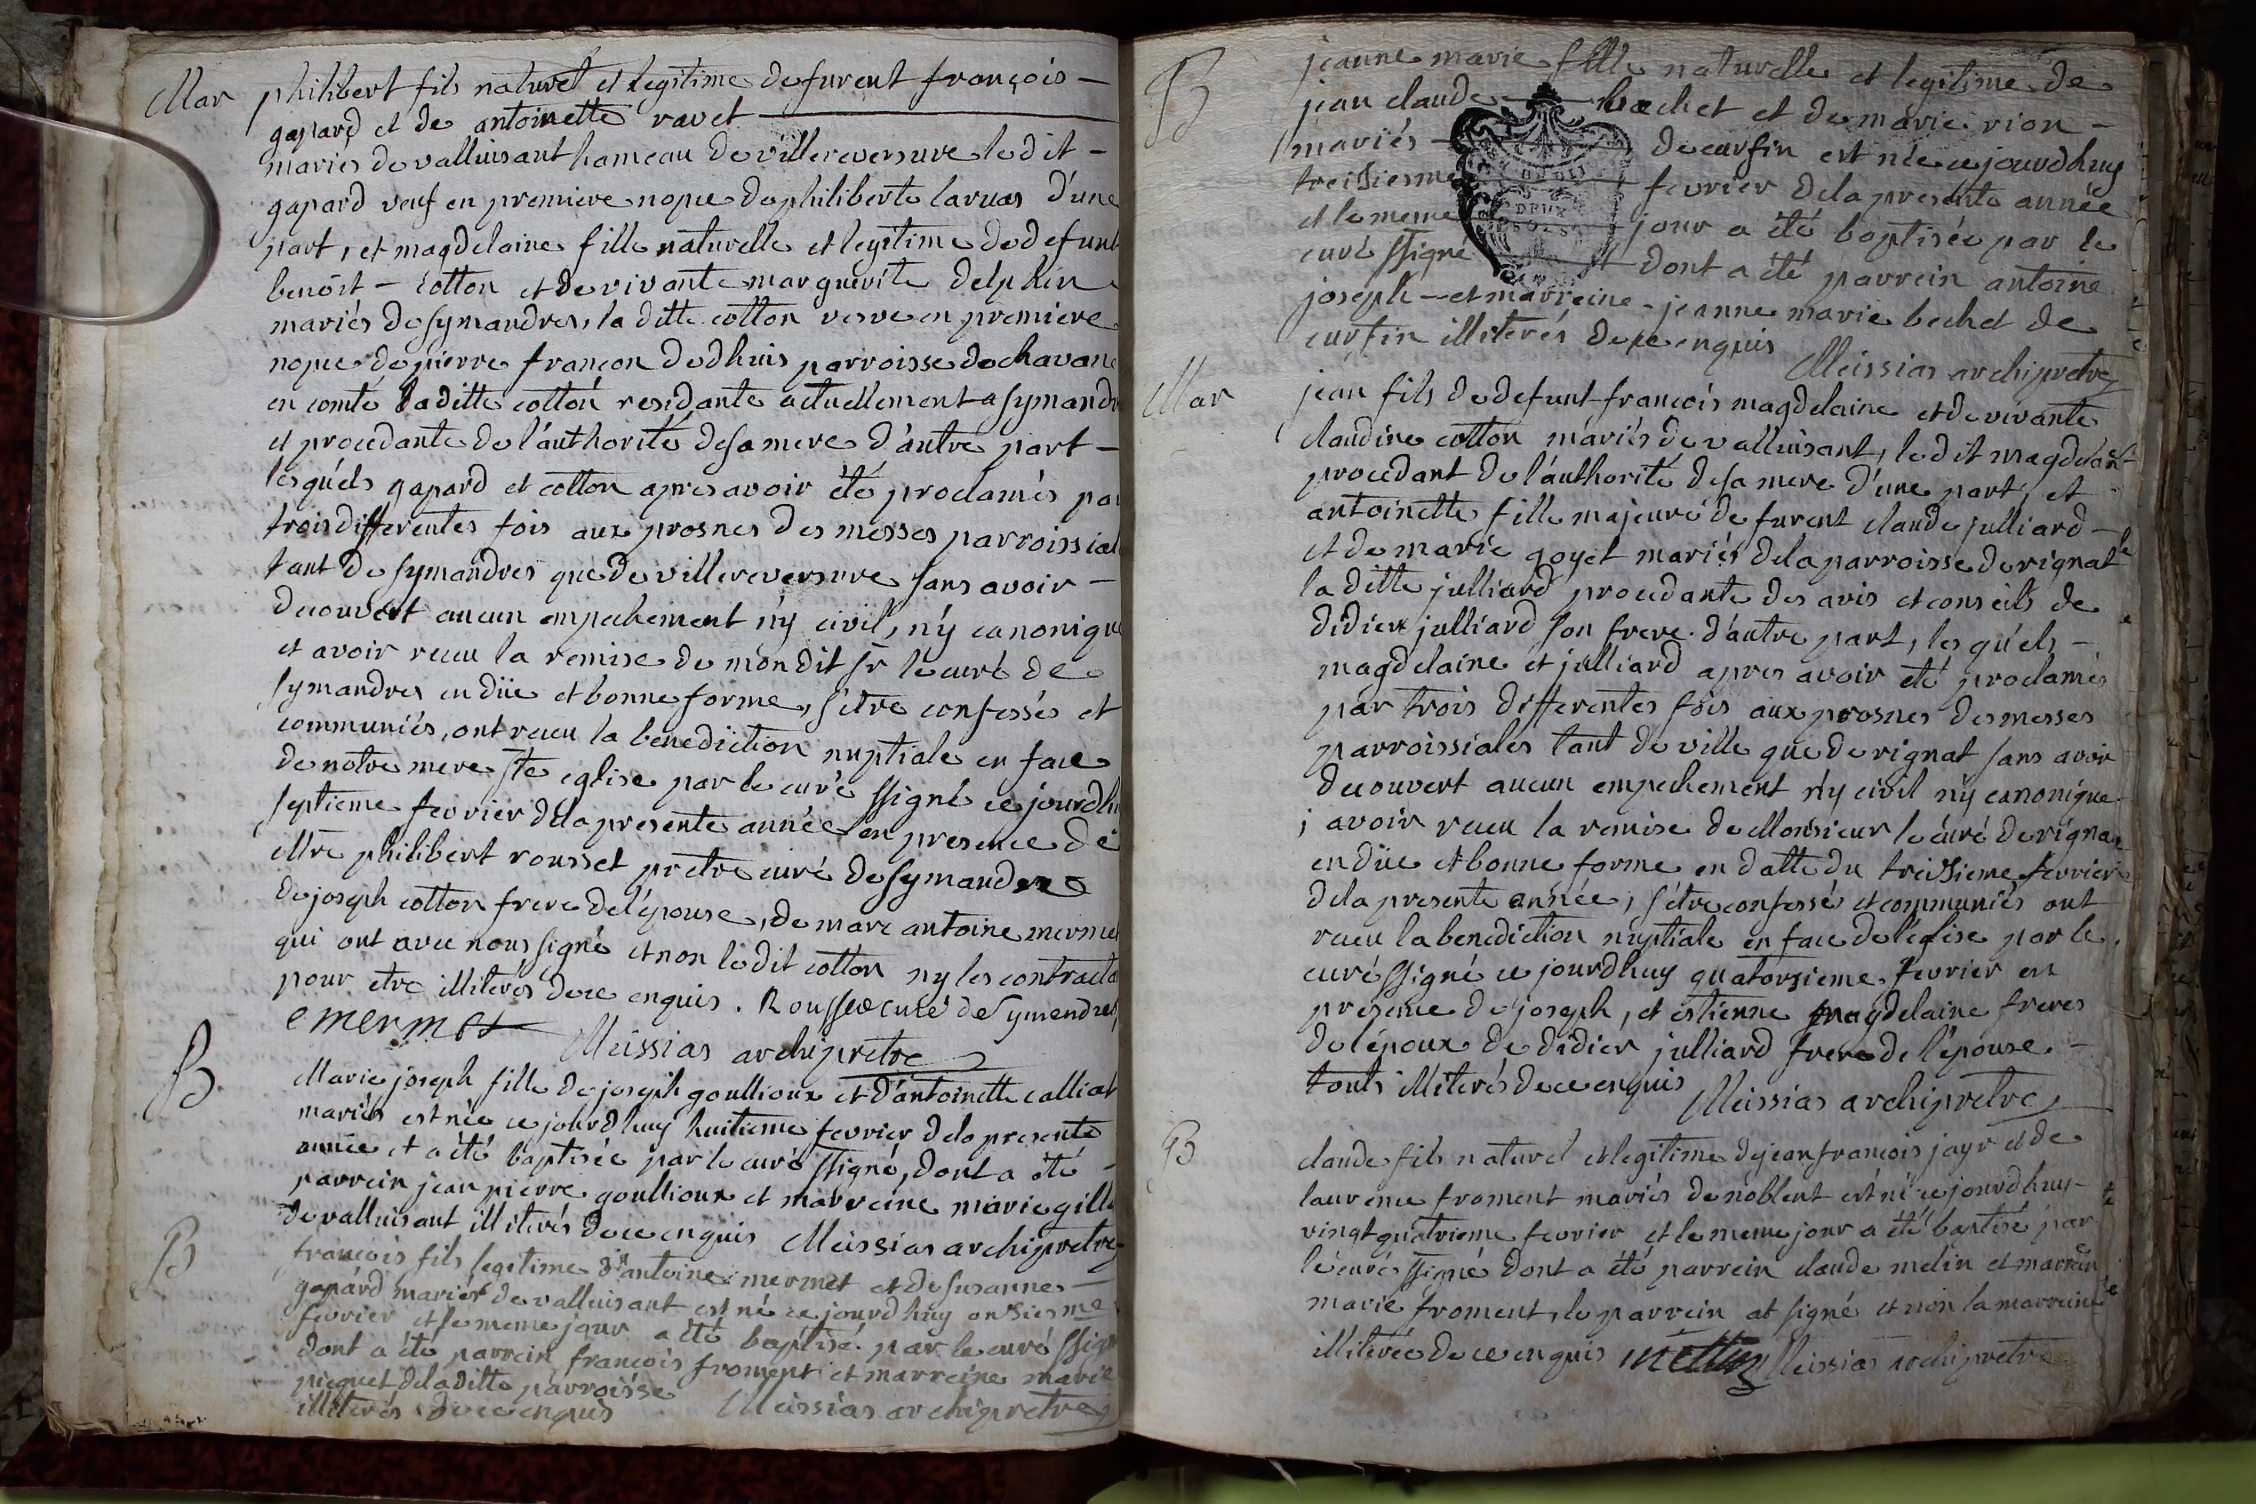 Mar philibert fils naturel et legitime de furent françois –
gapard et de antoinette ravet
mariés de valluisant hameau de villereversure le dit –
gapard veuf en premiere nopce de philiberte laruas d'une
part, et magdelaine fille naturelle et legitime de defunt
benoît – cotton et de vivante marguerite delphin
mariés de symandres, la ditte cotton vesve en premiere
nopce de pierre françon de dhuis parroisse de chavane
en comté laditte cotton residante actuellement a symandre
et procedante de l'authorité de sa mere d'autre part –
lesquels gapard et cotton apres avoir été proclamés par
trois differentes fois aux prosnes des messes parroissial
tant de symandres que de villereversure sans avoir –
decouvert aucun empechement n'y civil, n'y canonique
et avoir receu la remise de mondit sr le curé de
symandres en düe et bonne forme, s'étre confessés et
communiés, ont receu la benediction nuptiale en face
de notre mere ste eglise par le curé ssigné ce jourdhu
septieme fevrier de la presente année en presence de
Mre philibert rousset pretre curé de symandre
de joseph cotton frere de l'épouse, de marc antoine mermet
qui ont avec nous signé et non le dit cotton ny les contracta
pour etre illiterés de ce enquis. Rousset curé de Symendres,
emermet Meissias archipretre
B Marie joseph fille de joseph goullioux et d'antoinette calliat
mariés est née ce jourdhuy huitieme fevrier de la presente
année et a été baptisée par le curé ssigné, dont a été –
parrein jean pierre goullioux et marreine marie gille
de valluisant illiterés de ce enquis Meissias archipretre
B françois fils legitime d'antoine mermet et de susanne –
gapard mariés de valluisant est né ce jourdhuy onsiesme
fevrier et le meme jour a été baptisé par le curé ssigné
dont a été parrein françois froment et marreine marie
picquet de la ditte parroisse
illiterés de ce enquis Meissias archipretre
B jeanne marie fille naturelle et legitime de
jean claude bechet et de marie rion –
mariés – de curfin est née ce jourdhuy
treisiesme fevrier de la presente année
et le meme jour a été baptisée par le
curé ssigné dont a été parrein antoine
joseph – et marreine – jeanne marie bechet de
curfin illiterés de ce enquis
Meissias archipretre
DEUX
Mar jean fils de defunt françois magdelaine et de vivante
claudine cotton mariés de valluisant, le dit magdelaine
procedant de l'authorité de sa mere d'une part, et
antoinette fille majeure de furent claude julliard –
et de marie goyet mariés de la parroisse de rignat
la ditte julliard procedante des avis et conseils de
didier julliard son frere d'autre part, les quels –
magdelaine et julliard apres avoir été proclamés
par trois differentes fois aux prosnes des messes
parroissiales tant de ville que de rignat sans avoir
decouvert aucun empechement n'y civil n'y canonique
; avoir receu la remise de Monsieur le curé de rignat
en düe et bonne forme en datte du treisieme fevrier
de la presente année, s'étre confessés et communiés ont
receu la benediction nuptiale en face de l'eglise par le
curé ssigné ce jourdhuy quatorsieme fevrier en
presence de joseph, et estienne magdelaine freres
de l'époux de didier julliard frere de l'épouse –
touts illiterés de ce enquis
Meissias archipretre
B claude fils naturel et legitime de jean françois jayr et de
laurence froment mariés de noblent est né ce jourdhuy –
vingt quatrieme fevrier et le meme jour a été baptisé par
le curé ssigné dont a été parrein claude melin et marrein
marie froment, le parrein at signé et non la marreine
illiterée de ce enquis mellin Meissias archipretre